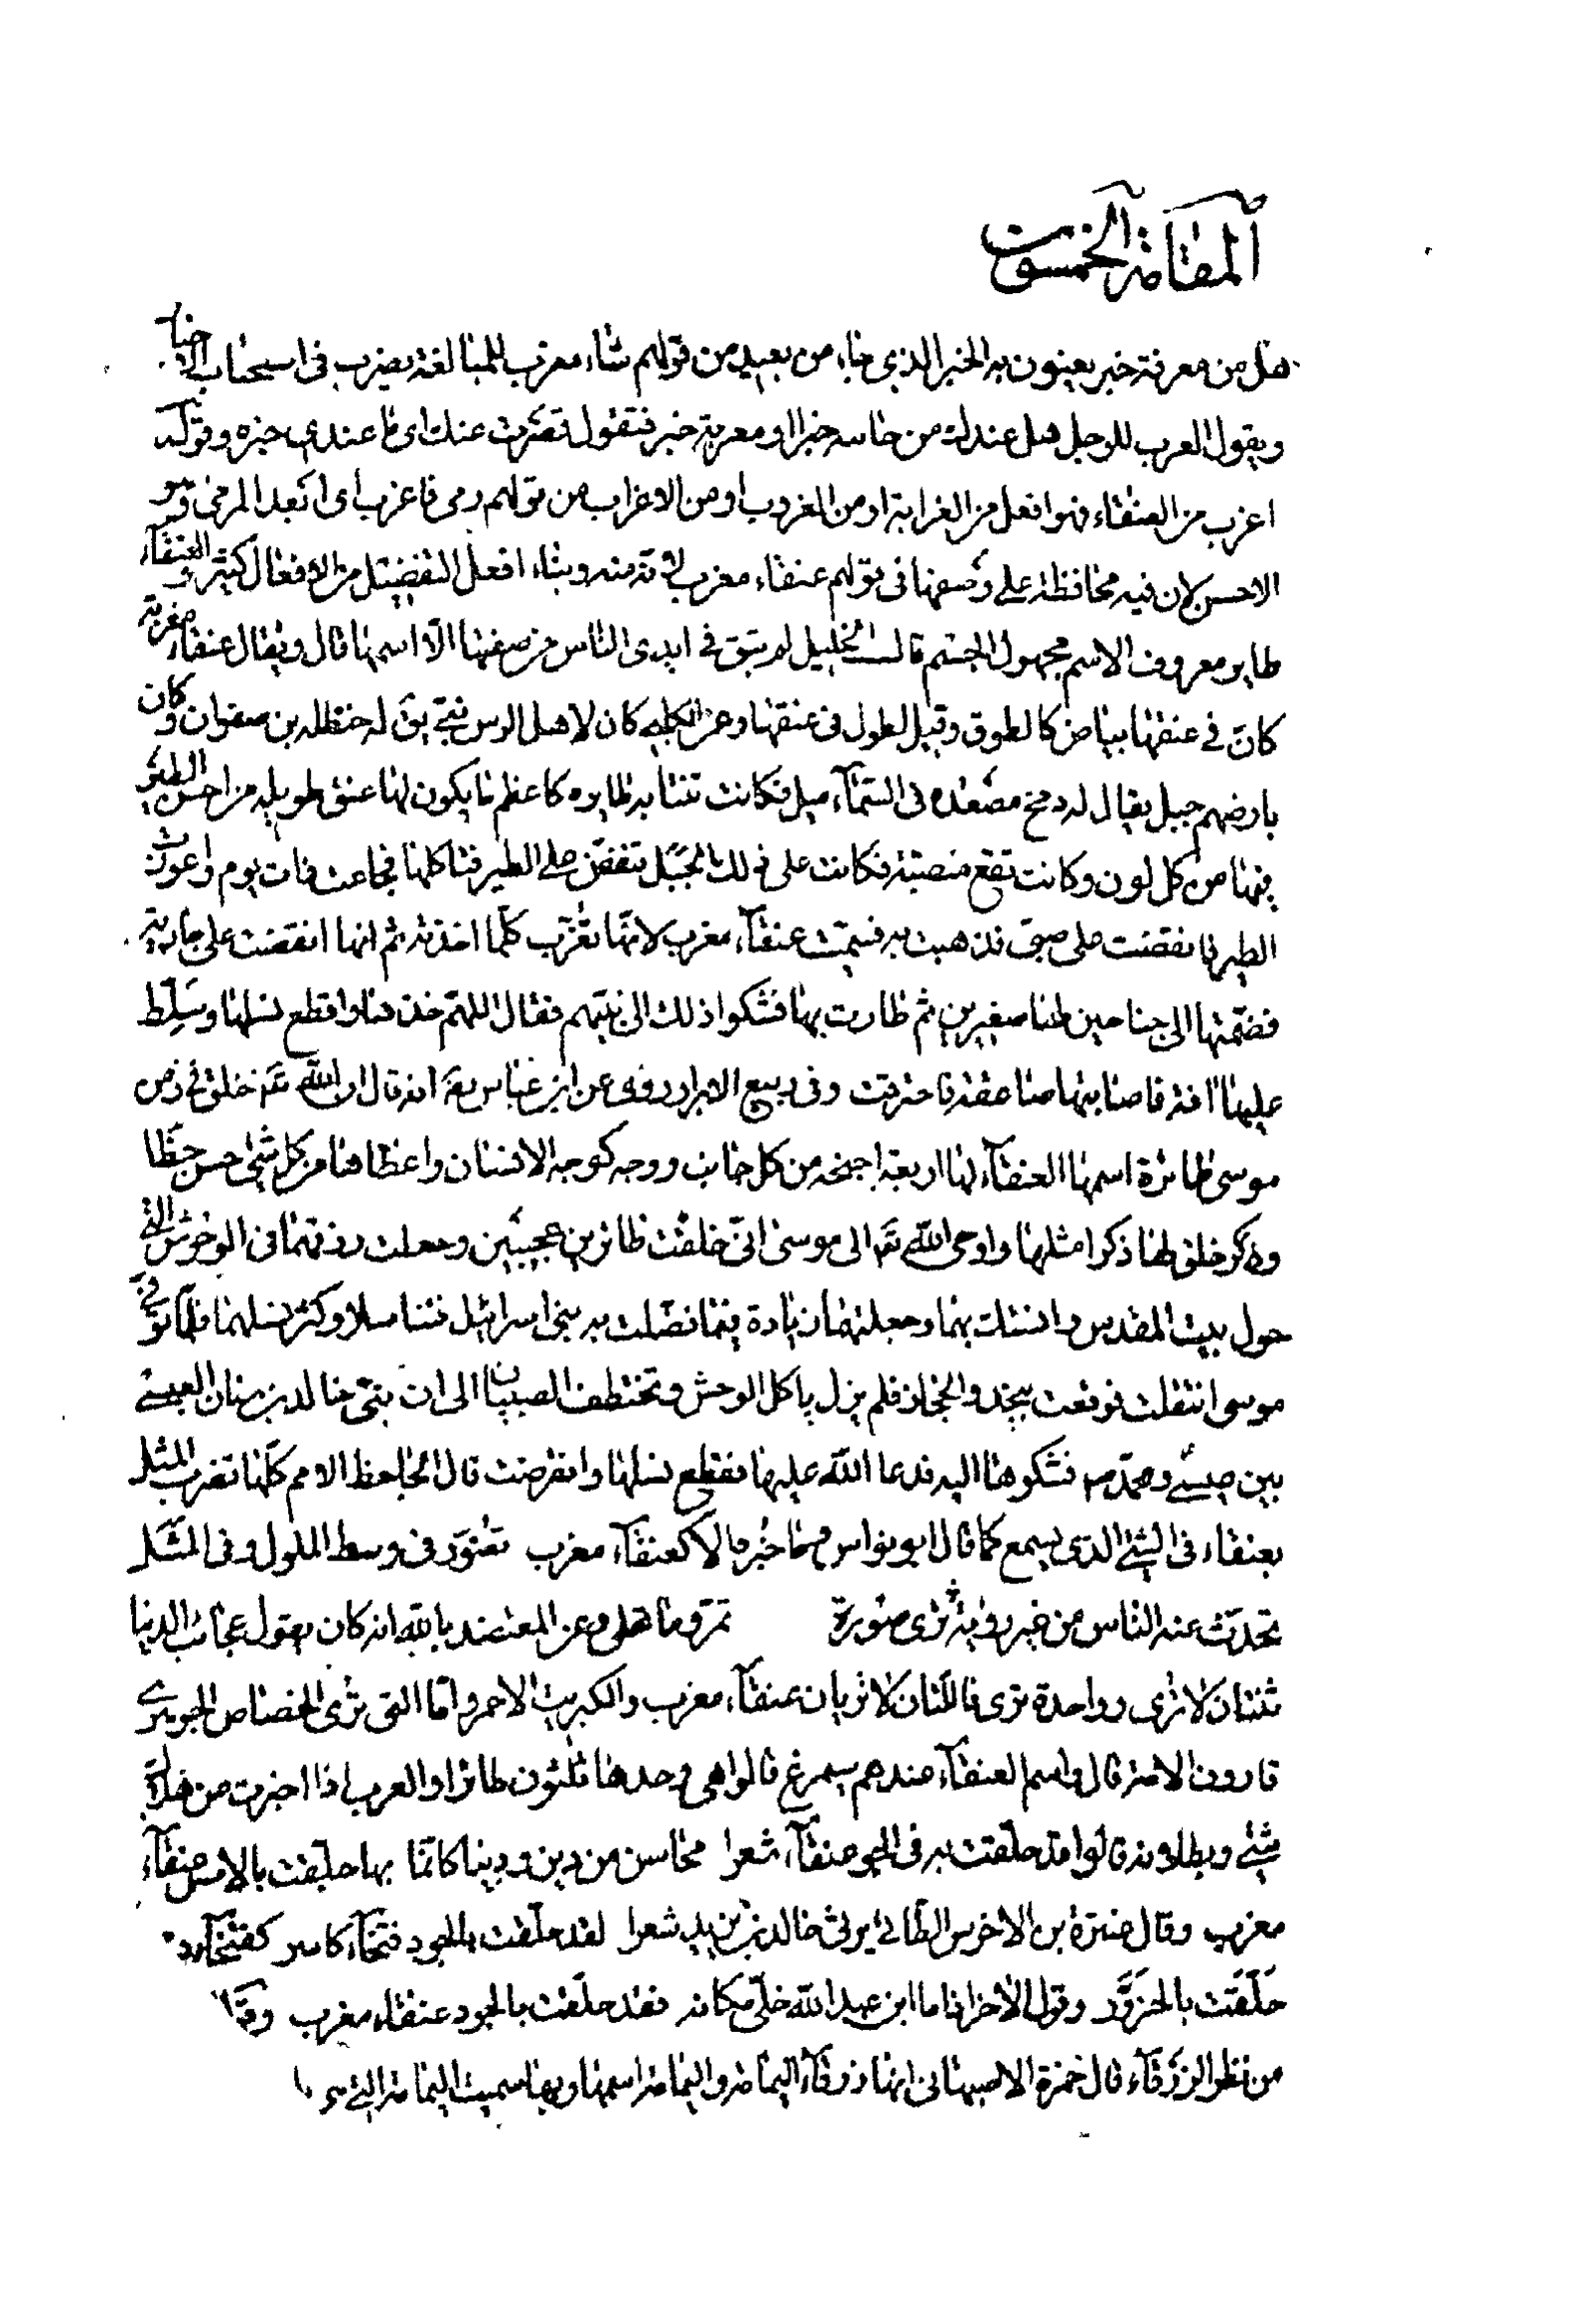 المقامة الخمسون
هل من مغربة خبر يعنون به الخبر الذي جاء من بعيد من قولهم شاء مغرب للمبالغة يضرب في استخبار الاخبار
ويقول العرب للرجل هل عندك من جايبه خبر او مغربة خبر فتقول قصرت عنك اى ما عندي خبره وقوله
اغرب من العنقاء فهو افعل من الغرابة او من الغروب او من الاغراب من قولهم رمى فاغرب اى ابعد المرمى وهو
الاحسن لان فيه محافظة على وصفها فى قولهم عنقاء مغرب لانه منه وبناء افعل التفضيل من الافعال كثير والعنقاء
طاير معروف الاسم مجهول الجسم قال الخليل لم يبق في ايدى الناس من صفتها الا اسمها قال ويقال عنقاء مغربة
كان في عنقها بياض كالطوق وقيل لطول فى عنقها وعن الكلبى كان لاهل الرس نبي يق له حنظله بن صفوان وكان
بارضهم جبل يقال له دمخ مصعده فى السماء ميل فكانت تنتابه طايره كاعظم ما يكون لها عنق طويله من احسن الطير
فيها من كل لون وكانت تقع منصبة فكانت على ذلك الجبل تنقض على الطير فتاكلها فجاعت ذات يوم واعوزت
الطير فانقضت على صبى فذهبت به فسميت عنقاء مغرب لانها تغرب كلما اخذته ثم انها انقضت على جارية
فضمتها الى جناحين لها صغيرين ثم طارت بها فشكوا ذلك الى نبيهم فقال اللهم خذها واقطع نسلها وسلط
عليها افة فاصابتها صاعقة فاحترقت وفى ربيع الابرار روى عن ابن عباس رضه انه قال ان الله تع خلق في زمن
موسى طائرة اسمها العنقاء لها اربعة اجنحه من كل جانب ووجه كوجه الانسان واعطاها من كل شئ حسن حظا
وذكر خلق لها ذكرا مثلها واوحى الله تع الى موسى انى خلقت طائرين عجيبين وجعلت رزقهما فى الوحوش التى
حول بيت المقدس وانستك بهما وجعلتهما زيادة فيما فضلت به بنى اسرائيل فتناسلا وكثر نسلهما فلما توفى
موسى انتقلت فوقعت بنجد والحجاز فلم يزل ياكل الوحش وتختطف الصبيان الى ان نبئ خالد بن سنان العبسى
بين عيسى ومحمد ص فشكوها اليه فدعا الله عليها فقطع نسلها وانقرضت قال الجاحظ الامم كلها تضرب المثل
بعنقاء فى الشئ الذى يسمع كما قال ابو نواس وما خبره الا كعنقاء مغرب تصور فى وسط الملوك وفى المثل
تحدث عنه الناس من غير روية ترى صورة تمر وما تحلى وعن المعتضد بالله انه كان يقول عجائب الدنيا
ثنتان لا ترى وواحدة ترى فاللتان لا تريان عنقاء مغرب والكبريت الاحمر واما التى ترى الجصاص الجوهرى
قارون الامة قال واسم العنقاء عندهم سيمرغ قالوا هى وحدها ثلثون طائرا والعرب اذا اخبرت من هلاك
شئ وبطلانه قالوا قد حلقت به فى الجو عنقاء شعرا محاسن من دين ودنيا كانما بها حلقت بالامس عنقاء
مغرب وقال عنترة بن الاخرس الطائى يرثى خالد بن يزيد شعرا لقد حلقت بالجود فتخاء كاسر كفتخاء د
حلقت بالحزور وقول الاخر اذا ما ابن عبد الله خلى مكانه فقد حلقت بالجود عنقاء مغرب وقا
من نظر الزرقاء قال حمزة الاصبهانى انها زرقاء اليمامة واليمامة اسمها وبها سميت اليمامة التى